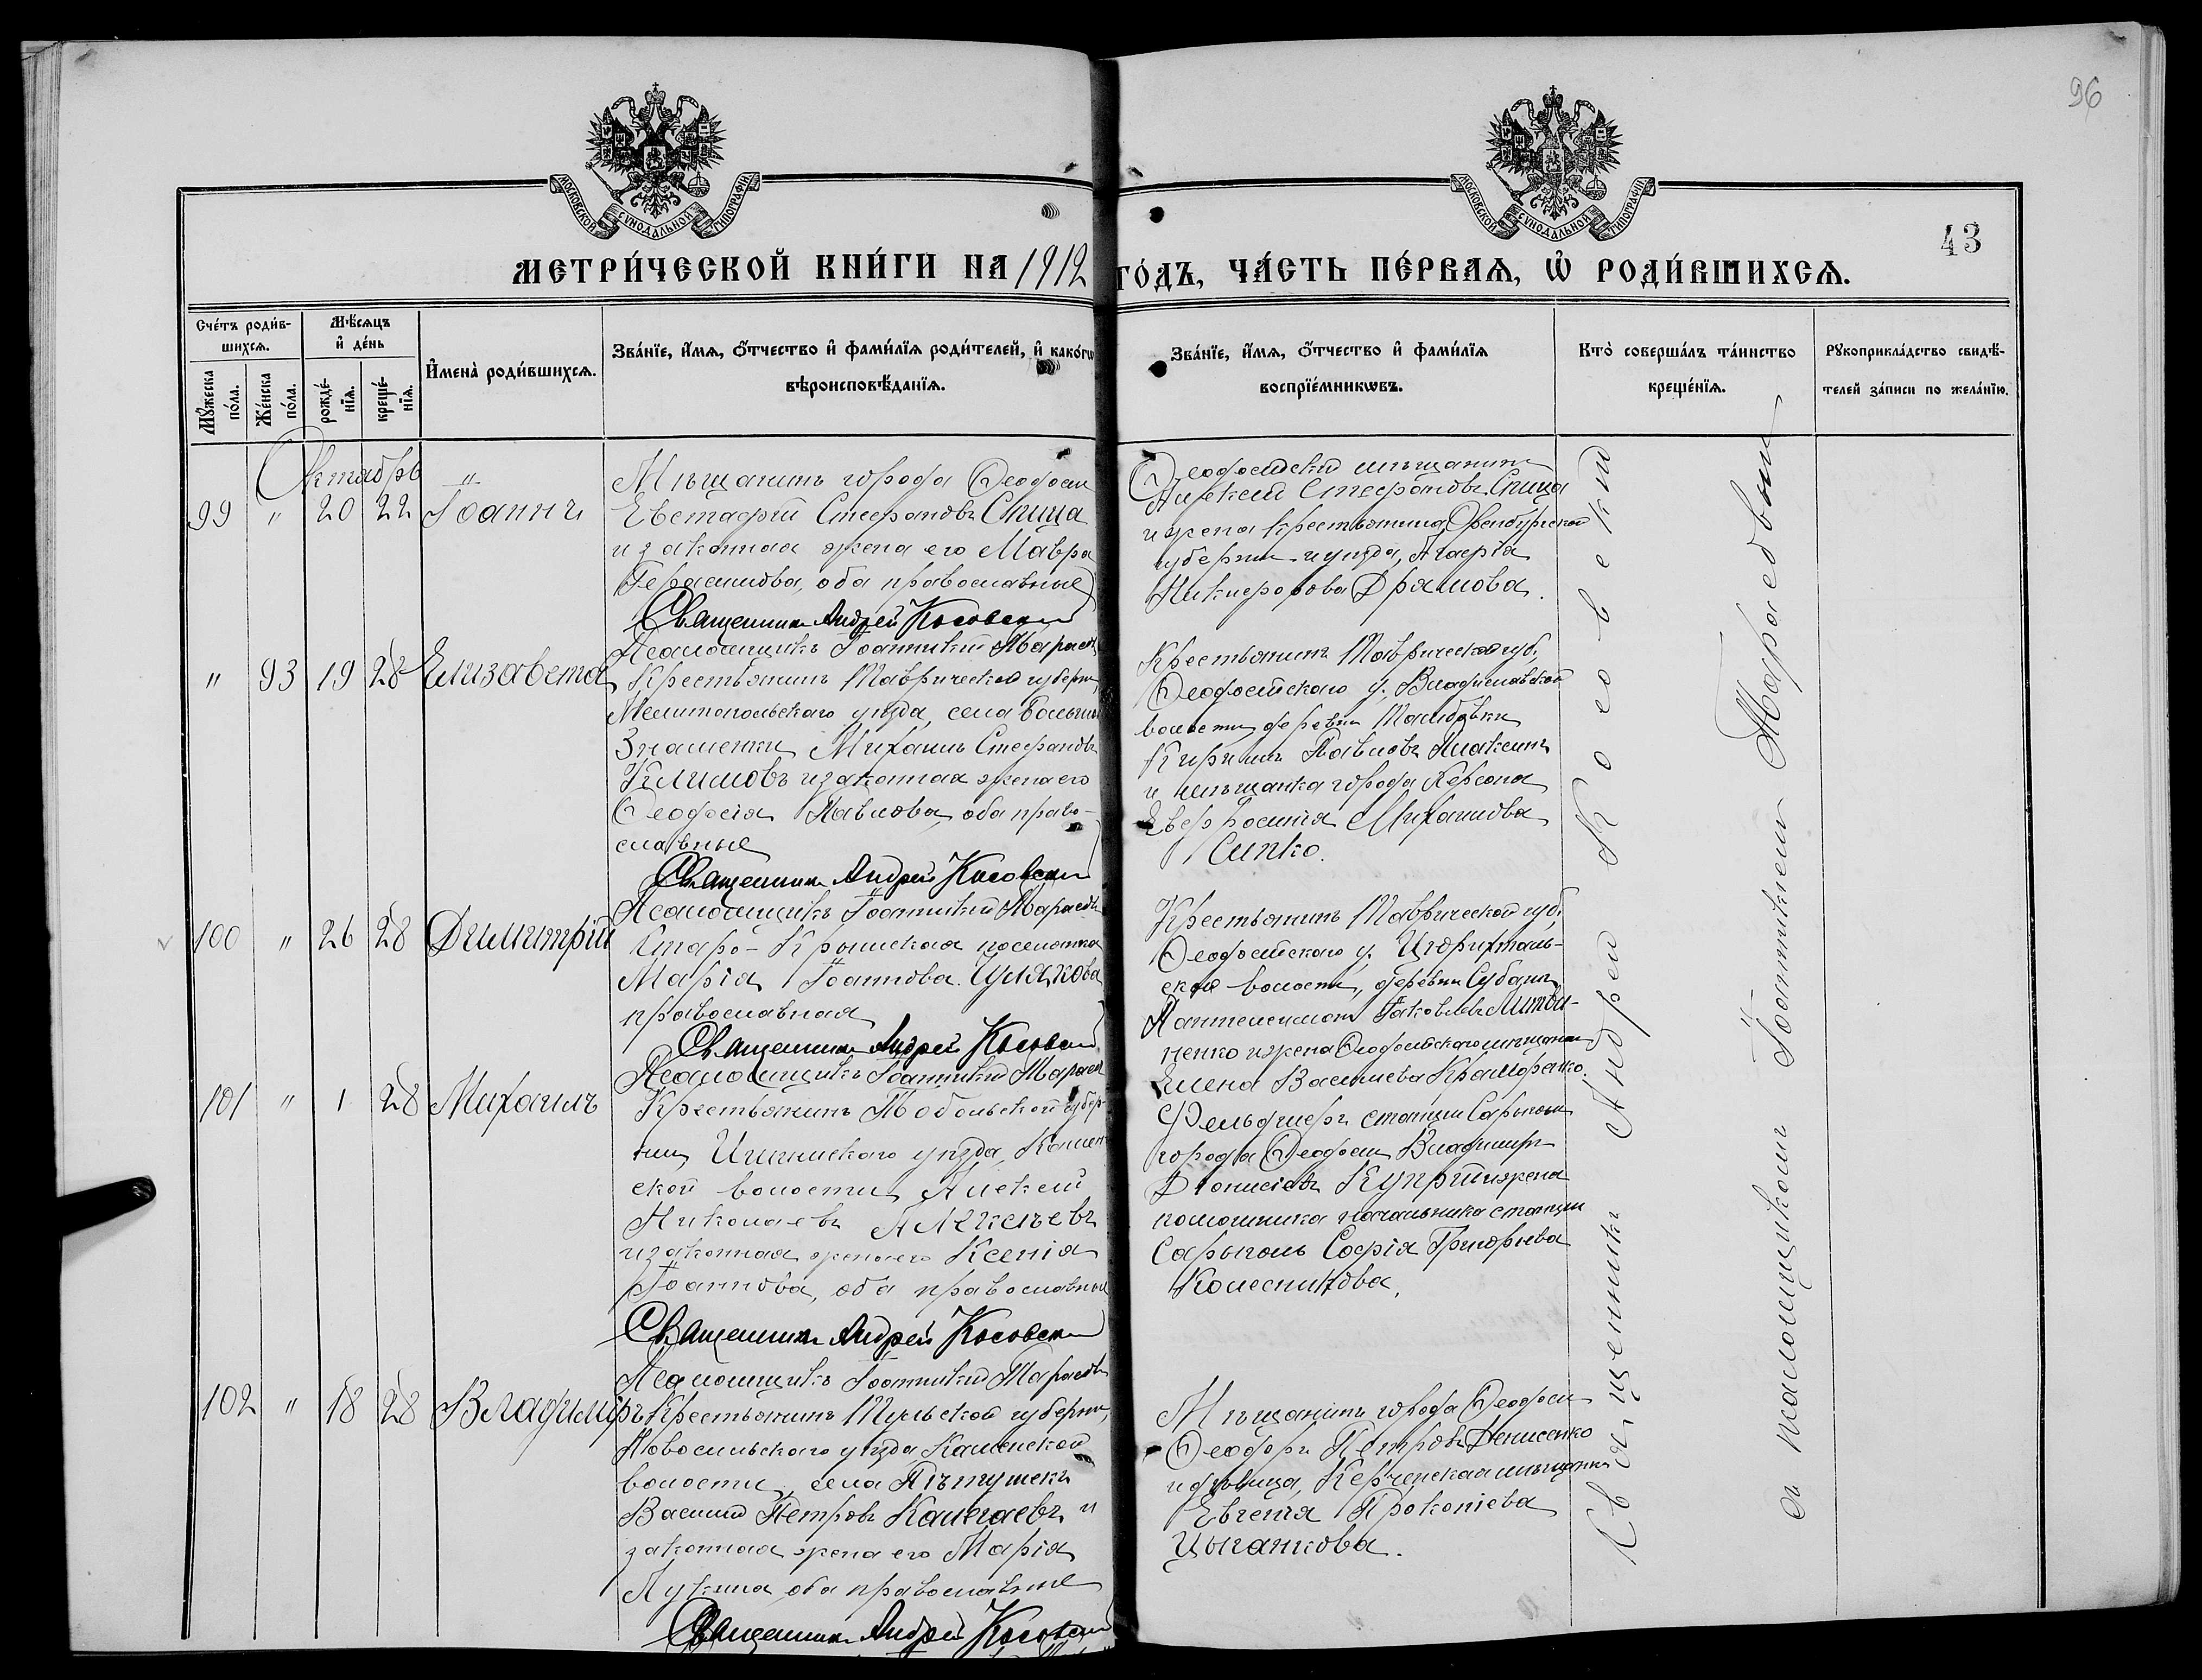 96
МОСКОВСКОЙ СѴНОДАЛЬНОЙ ТИПОГРАФІИ
МОСКОВСКОЙ СѴНОДАЛЬНОЙ ТИПОГРАФІИ
43
МЕТРИ́ЧЕСКОЙ КНИ́ГИ НА 1912 ГО́ДЪ, ЧА́СТЬ ПЕ́РВАѦ, Ѡ҆ РОДИ́ВШИХСѦ.
Сче́тъ роди́в-
шихсѧ.
Мꙋ́жеска по́ла.
Же́нска по́ла.
Мѣ́сѧцъ
и҆ де́нь
рожде́-
нїѧ.
креще́-
нїѧ.
И҆мена̀ роди́вшихсѧ.
Зва́нїе, и҆́мѧ, ѻ҆́тчество и҆ фами́лїѧ роди́телей, и҆ како́гѡ
вѣроисповѣ́данїѧ.
Зва́нїе, и҆́мѧ, ѻ҆́тчество и҆ фами́лїѧ
воспрїе́мникѡвъ.
Кто̀ соверша́лъ та́инство
креще́нїѧ.
Рꙋкоприкла́дство свидѣ́-
телей за́писи по жела́нїю.
Октябрь
99 " 20 22 Іоаннъ
Мѣщанинъ города Ѳеодосіи
Евстафій Стефановъ Спица
и законная жена его Мавра
Герасимова, оба православные
Священникъ Андрей Косовский
Псаломщикъ Іоанникий Тараев
Ѳеодосійскій мѣщанинъ
Алексій Стефановъ Спица
и жена крестьянина Оренбургской
губерніи и уѣзда, Агафія
Никифорова Драмова.
" 93 19 28 Елизавета
Крестьянинъ Таврической губерніи,
Мелитопольскаго уѣзда, села Большой
Знаменки Михаилъ Стефановъ
Климовъ и законная жена его
Ѳеодосія Павлова, оба право-
славные
Священникъ Андрей Косовский
Псаломщикъ Іоанникий Тараев
Крестьянинъ Таврической губ.,
Ѳеодосійскаго у., Владиславской
волости, деревни
Кириллъ Павловъ
и мѣщанка города Херсона
Евфросинія Михаилова
Сипко.
100 " 26 28 Димитрій
Старо-Крымская поселянка
Марія Іоаннова
православная
Священникъ Андрей Косовский
Псаломщикъ Іоанникий Тараев
Крестьянинъ Таврической губ.
Ѳеодосійскаго у. Цюрихталь-
ской волости, деревни Субашъ
Пантелеимонъ Іаковлевъ Литви-
ненко и жена Ѳеодосійскаго мѣщанина
Елена Васильева Крамаренко.
101 " 1 28 Михаилъ
Крестьянинъ Тобольской губер-
ніи, Ишимскаго уѣзда,
ской волости, Алексій
Николаевъ Алексѣевъ
и законная жена его Ксенія
Іоаннова, оба православные
Священникъ Андрей Косовский
Псаломщикъ Іоанникий Тараев
Фельдшеръ станціи Сарыголь
города Ѳеодосіи Владиміръ
Діонисіевъ Купрій и жена
помощника начальника станціи
Сарыголь Софія Григорьева
Колесникова.
102 " 18 28 Владиміръ
Крестьянинъ Тульской губерніи,
Новосильскаго уѣзда Каменской
волости, села Пѣтушекъ
Василій Петровъ Калгаевъ и
законная жена его Марія
Лукина оба православные
Священникъ Андрей Косовский
Мѣщанинъ города Ѳеодосіи
Ѳеодоръ Петровъ Денисенко
и дѣвица, Керченская мѣщанка
Евгенія Прокопіева
Цыганкова.
Священникъ Андрей Косовский
съ псаломщикомъ Іоанникіем Тараевымъ